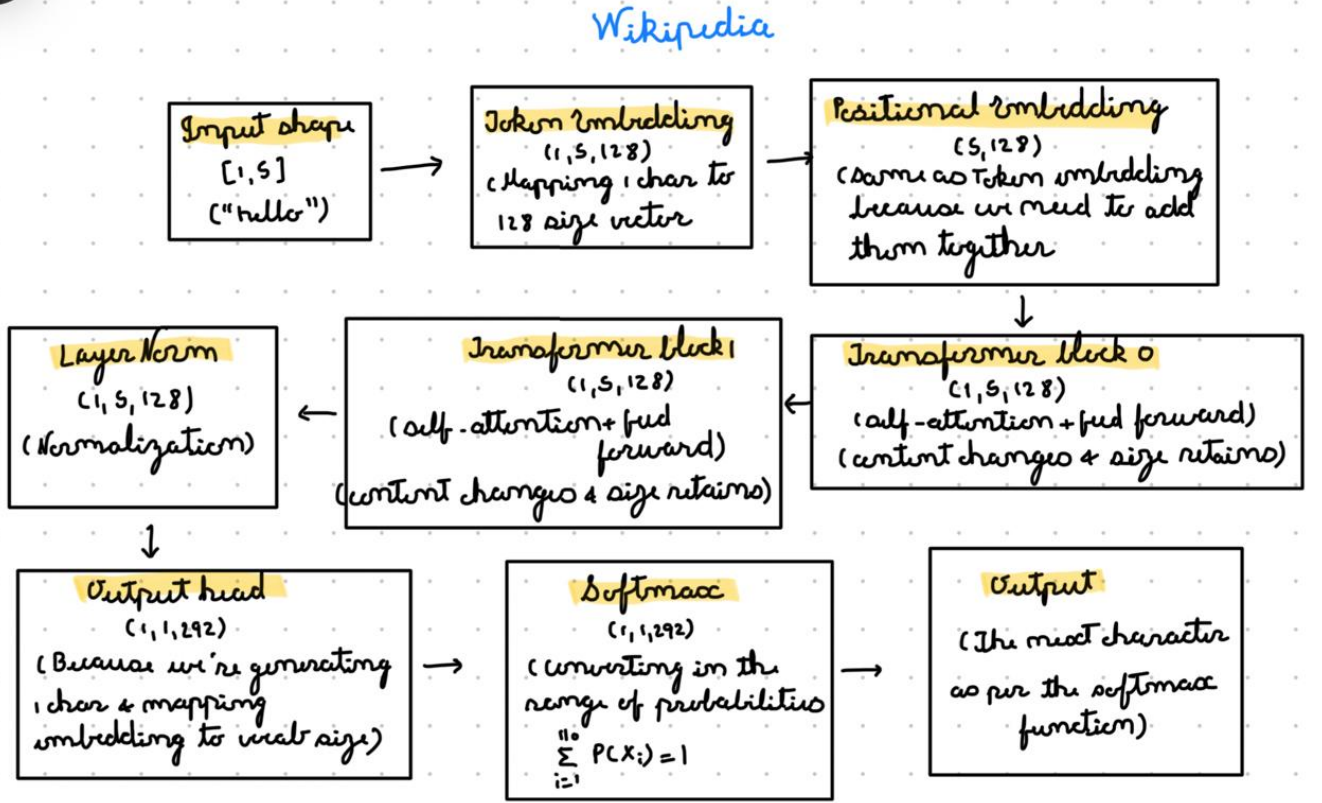 Wikipedia
Input shape
[1,5]
("hello")
Token Embedding
(1,5,128)
(Mapping 1 char to
128 size vector
Positional Embedding
(5,128)
(same as Token embedding
because we need to add
them together
Transformer block 0
(1,5,128)
(self-attention + feed forward)
(content changes & size retains)
Transformer block 1
(1,5,128)
(self-attention + feed
forward)
(content changes & size retains)
Layer Norm
(1,5,128)
(Normalization)
Output head
(1,1,292)
(Because we're generating
1 char & mapping
embedding to vocab size)
Softmax
(1,1,292)
(converting in the
range of probabilities
110
Σ P(Xi) = 1
i=1
Output
(The next character
as per the softmax
function)